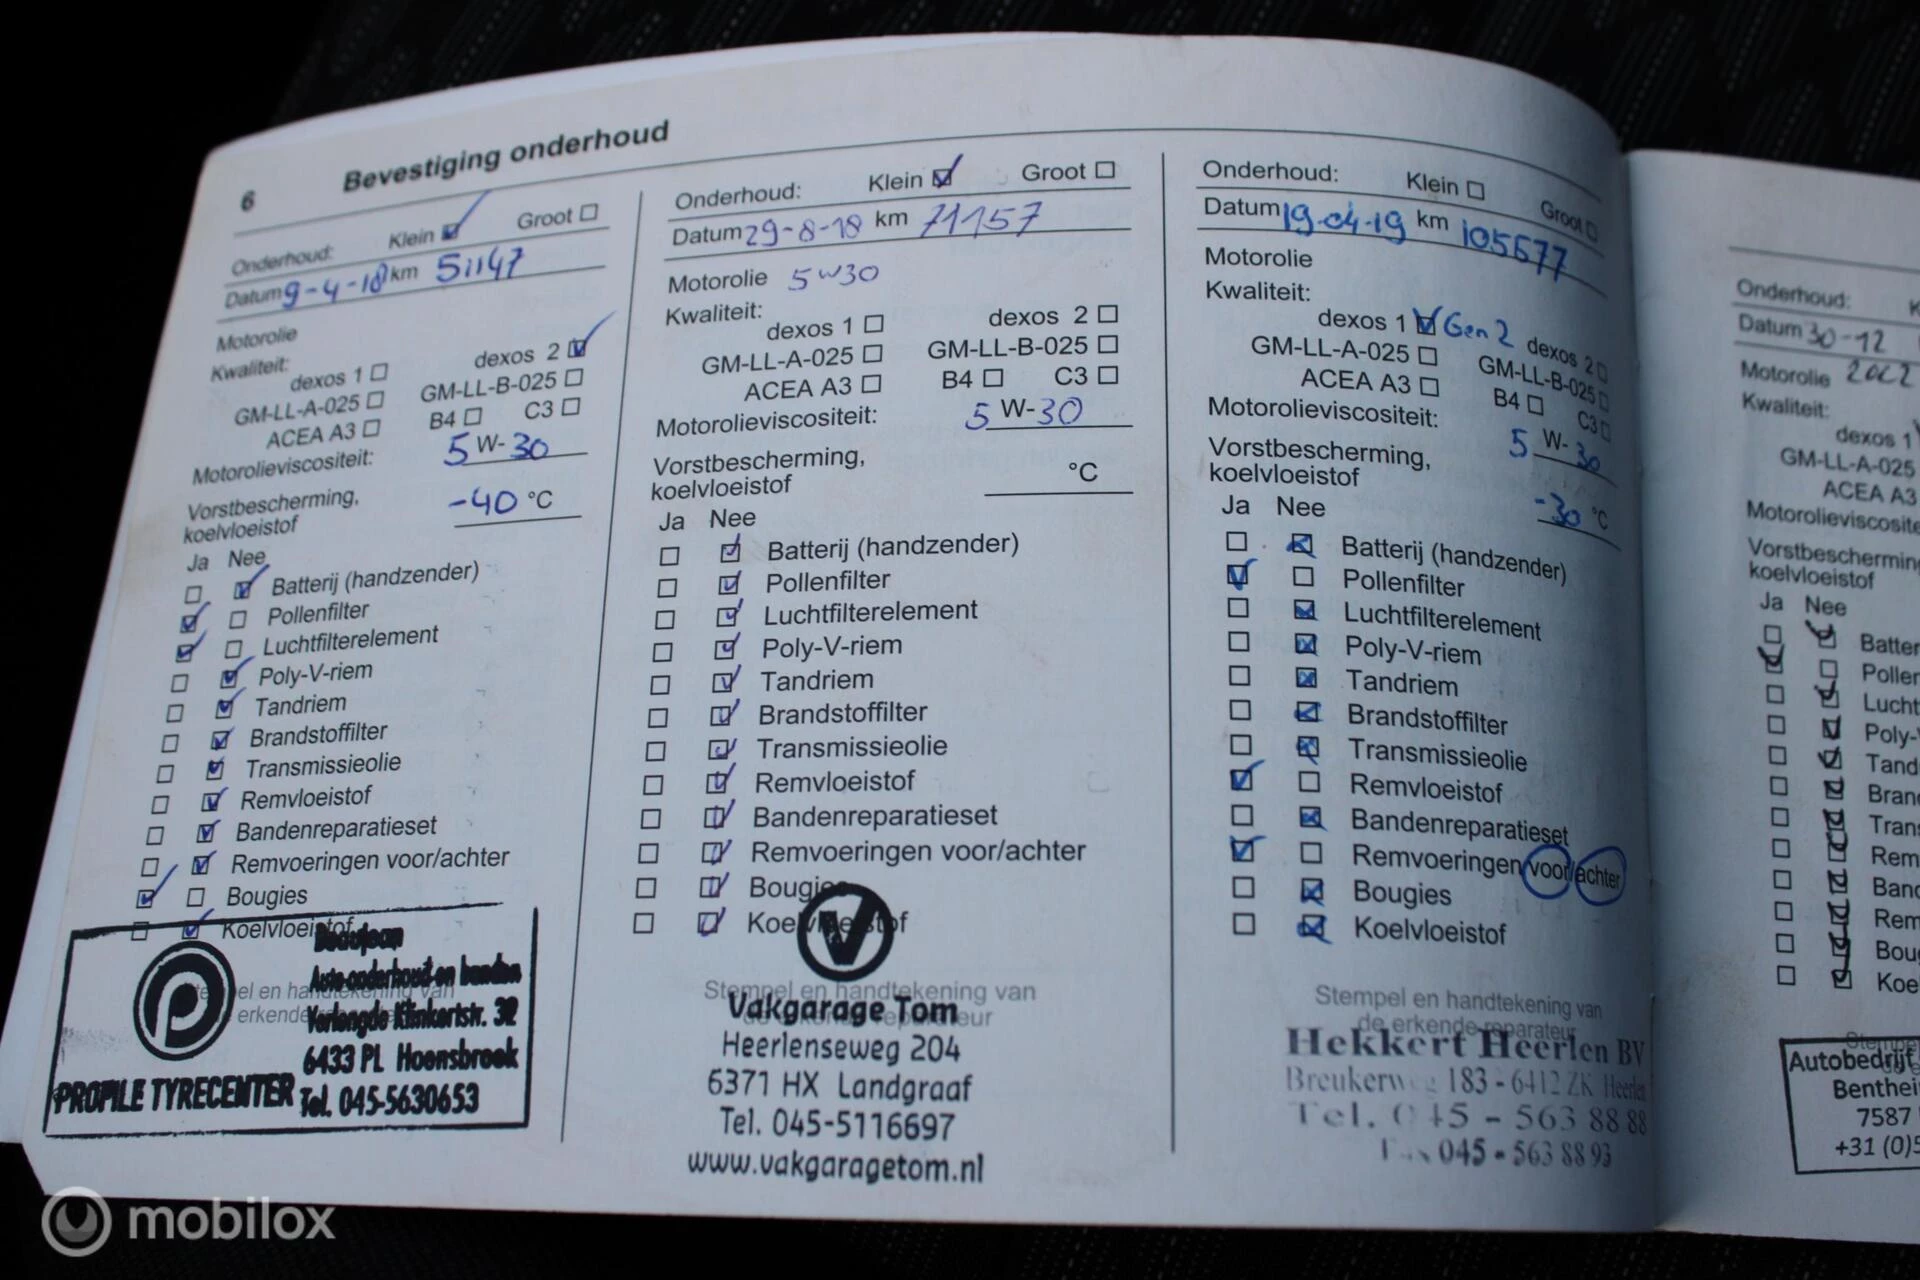 6 Bevestiging onderhoud
Onderhoud: Klein Groot
Datum 9-4-18 km 51147
Motorolie
Kwaliteit:
dexos 1 dexos 2
GM-LL-A-025 GM-LL-B-025
ACEA A3 B4 C3
Motorolieviscositeit: 5 W-30
Vorstbescherming,
koelvloeistof -40 °C
Ja Nee
Batterij (handzender)
Pollenfilter
Luchtfilterelement
Poly-V-riem
Tandriem
Brandstoffilter
Transmissieolie
Remvloeistof
Bandenreparatieset
Remvoeringen voor/achter
Bougies
Koelvloeistof
Auto onderhoud en banden
Verlengde Klinkertstr. 32
6433 PL Hoensbroek
PROFILE TYRECENTER Tel. 045-5630653
Onderhoud: Klein Groot
Datum 29-8-18 km 71157
Motorolie 5W30
Kwaliteit:
dexos 1 dexos 2
GM-LL-A-025 GM-LL-B-025
ACEA A3 B4 C3
Motorolieviscositeit: 5 W-30
Vorstbescherming,
koelvloeistof °C
Ja Nee
Batterij (handzender)
Pollenfilter
Luchtfilterelement
Poly-V-riem
Tandriem
Brandstoffilter
Transmissieolie
Remvloeistof
Bandenreparatieset
Remvoeringen voor/achter
Bougies
Koelvloeistof
Stempel en handtekening van
de erkende reparateur
Vakgarage Tom
Heerlenseweg 204
6371 HX Landgraaf
Tel. 045-5116697
www.vakgaragetom.nl
Onderhoud: Klein Groot
Datum 19-04-19 km 105677
Motorolie
Kwaliteit:
dexos 1 Gen 2 dexos 2
GM-LL-A-025 GM-LL-B-025
ACEA A3 B4 C3
Motorolieviscositeit: 5 W-30
Vorstbescherming,
koelvloeistof -30 °C
Ja Nee
Batterij (handzender)
Pollenfilter
Luchtfilterelement
Poly-V-riem
Tandriem
Brandstoffilter
Transmissieolie
Remvloeistof
Bandenreparatieset
Remvoeringen voor/achter
Bougies
Koelvloeistof
Stempel en handtekening van
de erkende reparateur
Hekkert Heerlen BV
Breukerweg 183 - 6412 ZK Heerlen
Tel. 045 - 563 88 88
Fax 045 - 563 88 93
Onderhoud: K
Datum 30-12
Motorolie
Kwaliteit:
dexos 1
GM-LL-A-025
ACEA A3
Motorolieviscosite
Vorstbescherming
koelvloeistof
Ja Nee
Batter
Pollen
Lucht
Poly-V
Tand
Bran
Tran
Rem
Band
Rem
Bou
Koe
Autobedrijf
Benthei
7587
+31 (0)5
mobilox